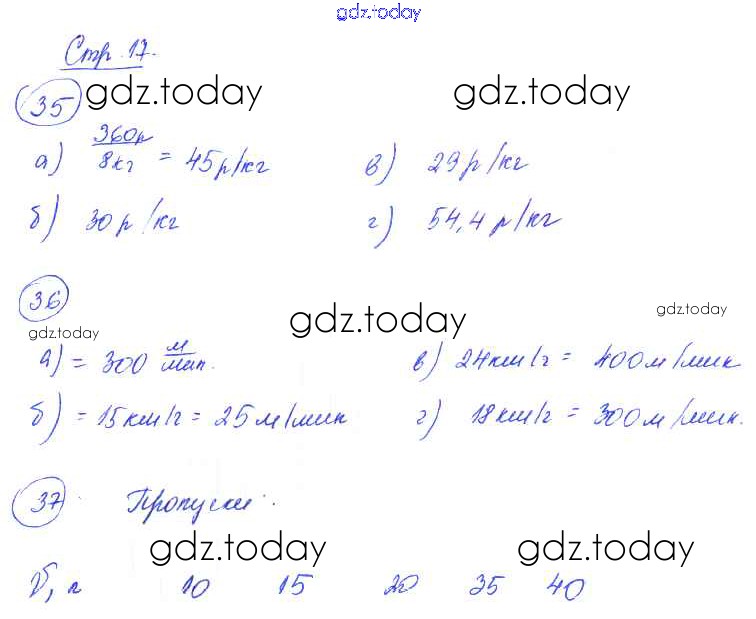 gdz.today
Стр. 17.
35 gdz.today gdz.today
а) 360р/8кг = 45р/кг в) 29р/кг
б) 30р/кг г) 54,4 р/кг
36
gdz.today gdz.today gdz.today
а) = 300 м/мин. в) 24км/г = 400м/мин
б) = 15км/г = 25м/мин г) 18км/г = 300м/мин.
37 Пропуски.
gdz.today gdz.today
V, л 10 15 20 35 40